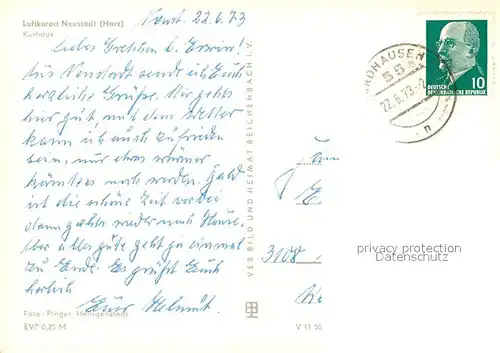 Luftkurort Neustadt (Harz)
Kurhaus
Neust. 22.6.73
Liebe Gretchen u. Erwin!
Aus Neustadt sende ich Euch
herzliche Grüße. Mir gehts
hier gut mit dem Wetter
kann ich auch zufrieden
sein, nur etwas wärmer
könnte es noch werden. Bald
ist die schöne Zeit vorbei
dann gehts wieder nach Hause,
aber alles gute geht ja einmal
zu Ende. Es grüßt Euch
herzlich
Euer Helmut.
Foto: Pinger, Heiligenstadt
EVP 0,20 M
VEB BILD UND HEIMAT REICHENBACH I. V.
V 11 50
NORDHAUSEN
55
22.6.73
n
DEUTSCHE
DEMOKRATISCHE REPUBLIK
10
3108
privacy protection
Datenschutz